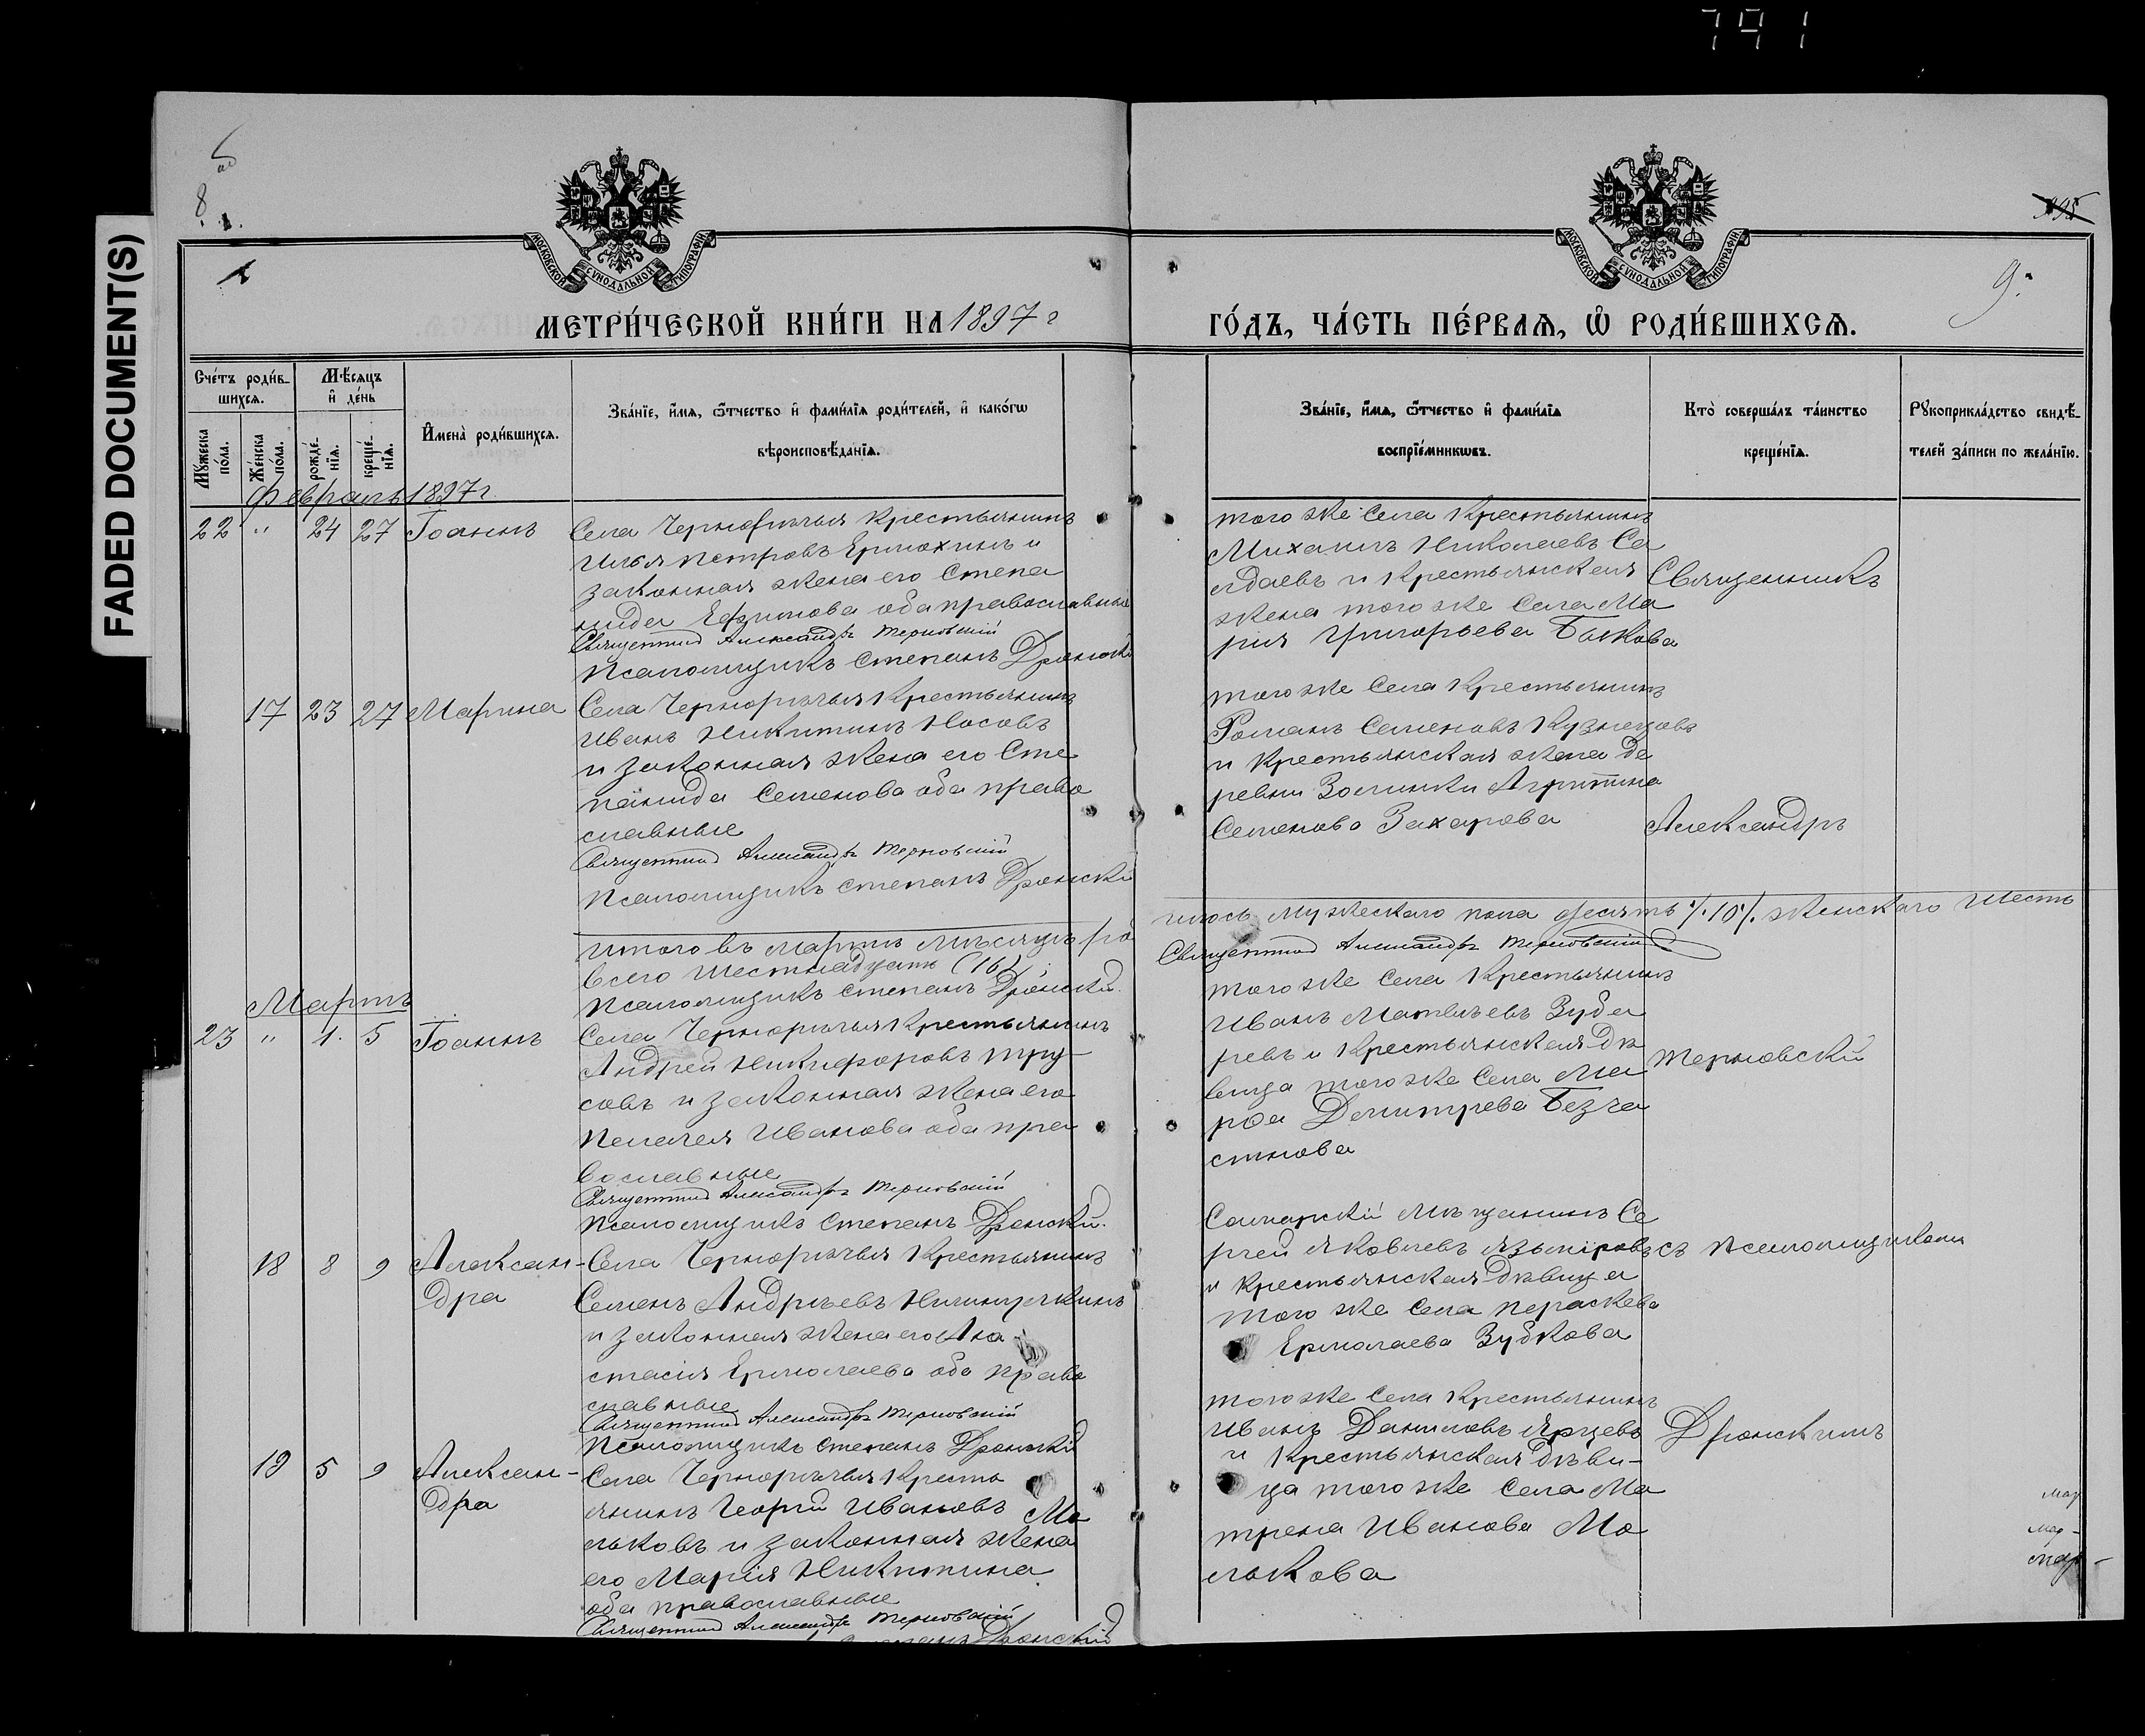 791
FADED DOCUMENT(S)
8
995
9.
МОСКОВСКОЙ СУНОДАЛЬНОЙ ТИПОГРАФІИ
МОСКОВСКОЙ СУНОДАЛЬНОЙ ТИПОГРАФІИ
МЕТРИ́ЧЕСКОЙ КНИ́ГИ НА 1897 г
ГО́ДЪ, ЧА́СТЬ ПЕ́РВАѦ, Ѽ РОДИ́ВШИХСѦ.
Сче́тъ роди́в-
шихся.
Мѣ́сяцъ
и҆ де́нь
Мꙋ́жеска
по́ла.
Же́нска
по́ла.
рожде́-
нїя.
креще́-
нїя.
И҆мена̀ роди́вшихся.
Зва́нїе, и҆́мя, ѻ҆́тчество и҆ фами́лїя роди́телей, и҆ како́гѡ
вѣроисповѣ́данїя.
Зва́нїе, и҆́мя, ѻ҆́тчество и҆ фами́лїя
воспрїе́мникѡвъ.
Кто̀ соверша́лъ та́инство
креще́нїя.
Рꙋкоприкла́дство свидѣ́-
телей за́писи по жела́нїю.
Февраль 1897 г.
22 " 24 27 Іоаннъ
Села Чернорѣчья Крестьянинъ
Илья Петровъ Ермохинъ и
законная жена его Степа
нида Ефимова оба православные
Священникъ Александръ Терновскій
Псаломщикъ Степанъ Дронскій
того же Села Крестьянинъ
Михаилъ Николаевъ Са
лдаевъ и Крестьянская
жена того же Села Ма
рія Григорьева Быкова
Священникъ
17 23 27 Марина
Села Чернорѣчья Крестьянинъ
Иванъ Никитинъ Носовъ
и законная жена его Сте
панида Семенова оба право
славные
Священникъ Александръ Терновскій
Псаломщикъ Степанъ Дронскій
того же Села Крестьянинъ
Романъ Семеновъ Кузнецовъ
и Крестьянская жена де
ревни Агрипина
Семенова Захарова
Александръ
Итого въ Мартѣ Мѣсяцѣ ро
дилось Мужескаго пола десять /10/. женскаго Шесть
всего Шестнадцать (16)
Псаломщикъ Степанъ Дронскій.
Священникъ Александръ Терновскій
Мартъ
23 " 1. 5 Іоаннъ
Села Чернорѣчья Крестьянинъ
Андрей Никифоровъ Тру-
совъ и законная жена его
Пелагея Иванова оба пра
вославные
Священникъ Александръ Терновскій
Псаломщикъ Степанъ Дронскій.
того же Села Крестьянинъ
Иванъ Матвѣевъ Зуба
ревъ и Крестьянская дѣ
вица того же Села Ма
рфа Демитрева Безча
стнова
Терновскій
18 8 9 Алексан-
дра
Села Чернорѣчья Крестьянинъ
Семенъ Андрѣевъ
и законная жена его Ана
стасія Ермолаева оба право
славные
Священникъ Александръ Терновскій
Псаломщикъ Степанъ Дронскій
Самарскій Мѣщанинъ Се
ргей Яковлевъ
и крестьянская дѣвица
того же Села Параскева
Ермолаева Зубкова
съ Псаломщикомъ
19 5 9 Алексан-
дра
Села Чернорѣчья Кресть
янинъ Георгій Ивановъ Мо
льковъ и законная жена
его Марія Никитина
оба православные
Священникъ Александръ Терновскій
Дронскій
того же Села Крестьянинъ
Иванъ Даниловъ Ярцевъ
и Крестьянская дѣви-
ца того же Села Ма
трена Иванова Мо
лькова
Дронскимъ